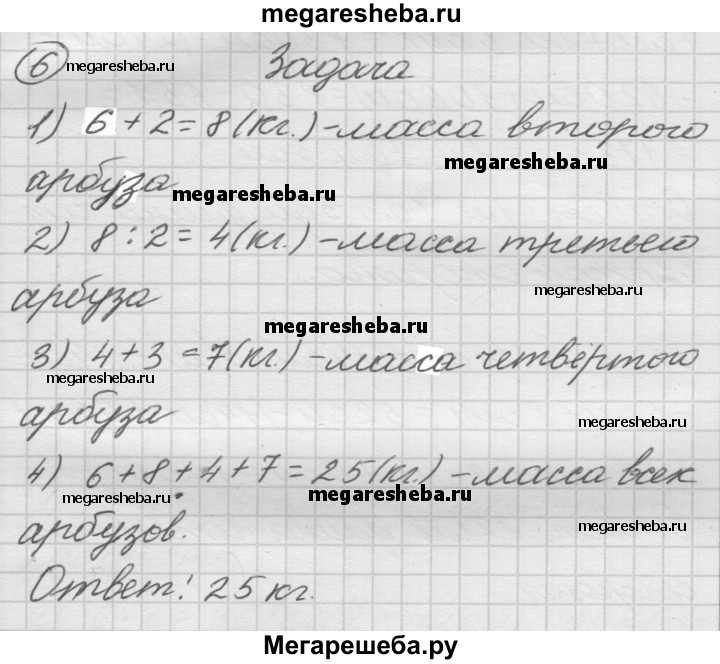 megaresheba.ru
6 megaresheba.ru Задача
1) 6 + 2 = 8 (кг.) - масса второго
megaresheba.ru
арбуза megaresheba.ru
2) 8 : 2 = 4 (кг.) - масса третьего
арбуза megaresheba.ru
megaresheba.ru
3) 4 + 3 = 7 (кг.) - масса четвёртого
megaresheba.ru
арбуза megaresheba.ru
4) 6 + 8 + 4 + 7 = 25 (кг.) - масса всех
megaresheba.ru megaresheba.ru
арбузов. megaresheba.ru
Ответ: 25 кг.
Мегарешеба.ру